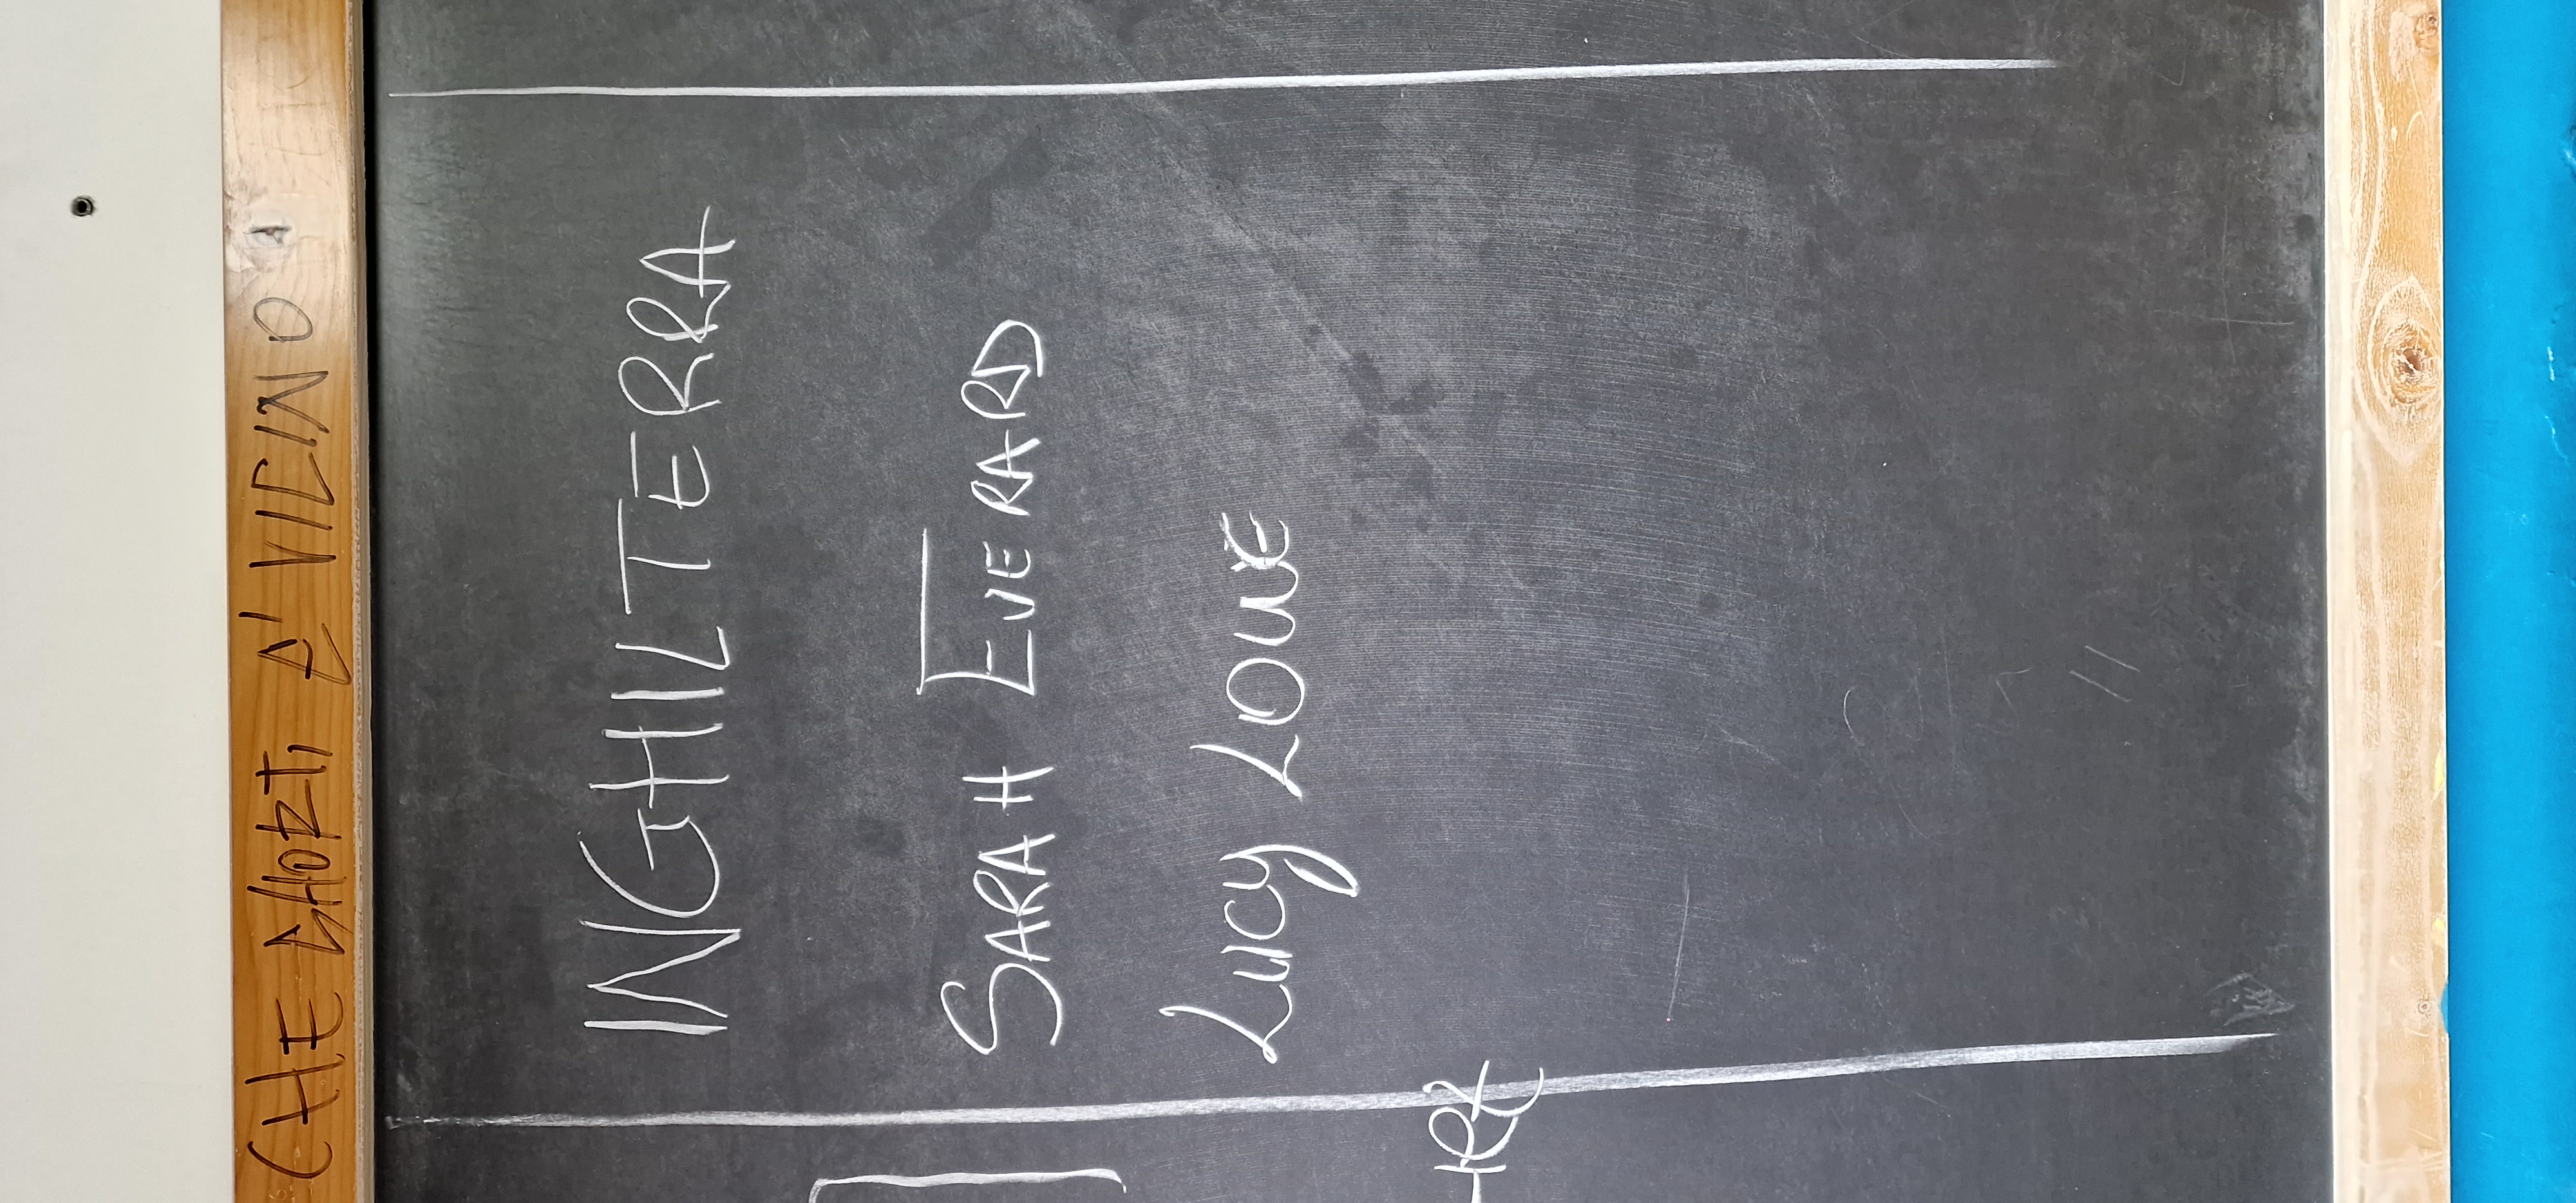 CHE SHORTI, A' VICINO
INGHILTERRA
SARAH EVERARD
LUCY LOWE